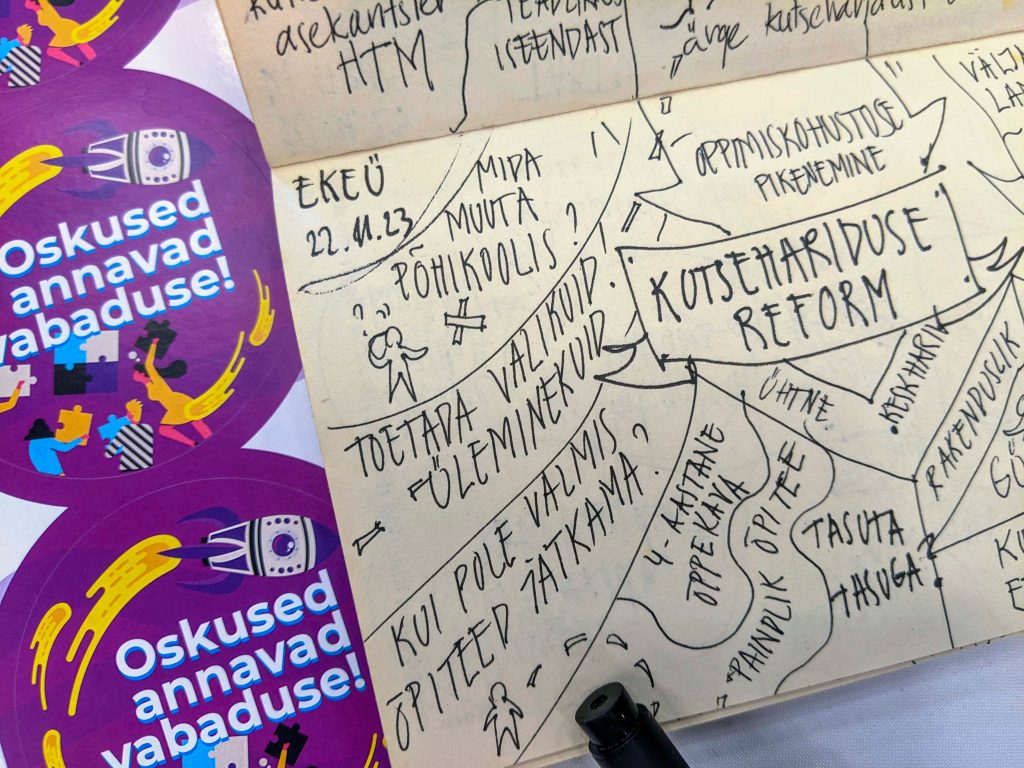 asekantsler
HTM
ISEENDAST
ärge
EKEÜ
22.11.23
MIDA
MUUTA
PÕHIKOOLIS?
TOETADA VALIKUID!
ÜLEMINEKUID
KUI POLE VALMIS
ÕPITEED JÄTKAMA?
ÕPPIMISKOHUSTUSE
PIKENEMINE
KUTSEHARIDUSE
REFORM
ÜHTNE
KESKHARIK
RAKENDUSLIK
4-AASTANE
ÕPPEKAVA
PAINDLIK ÕPITEE
TASUTA
TASUGA
Oskused
annavad
vabaduse!
Oskused
annavad
vabaduse!